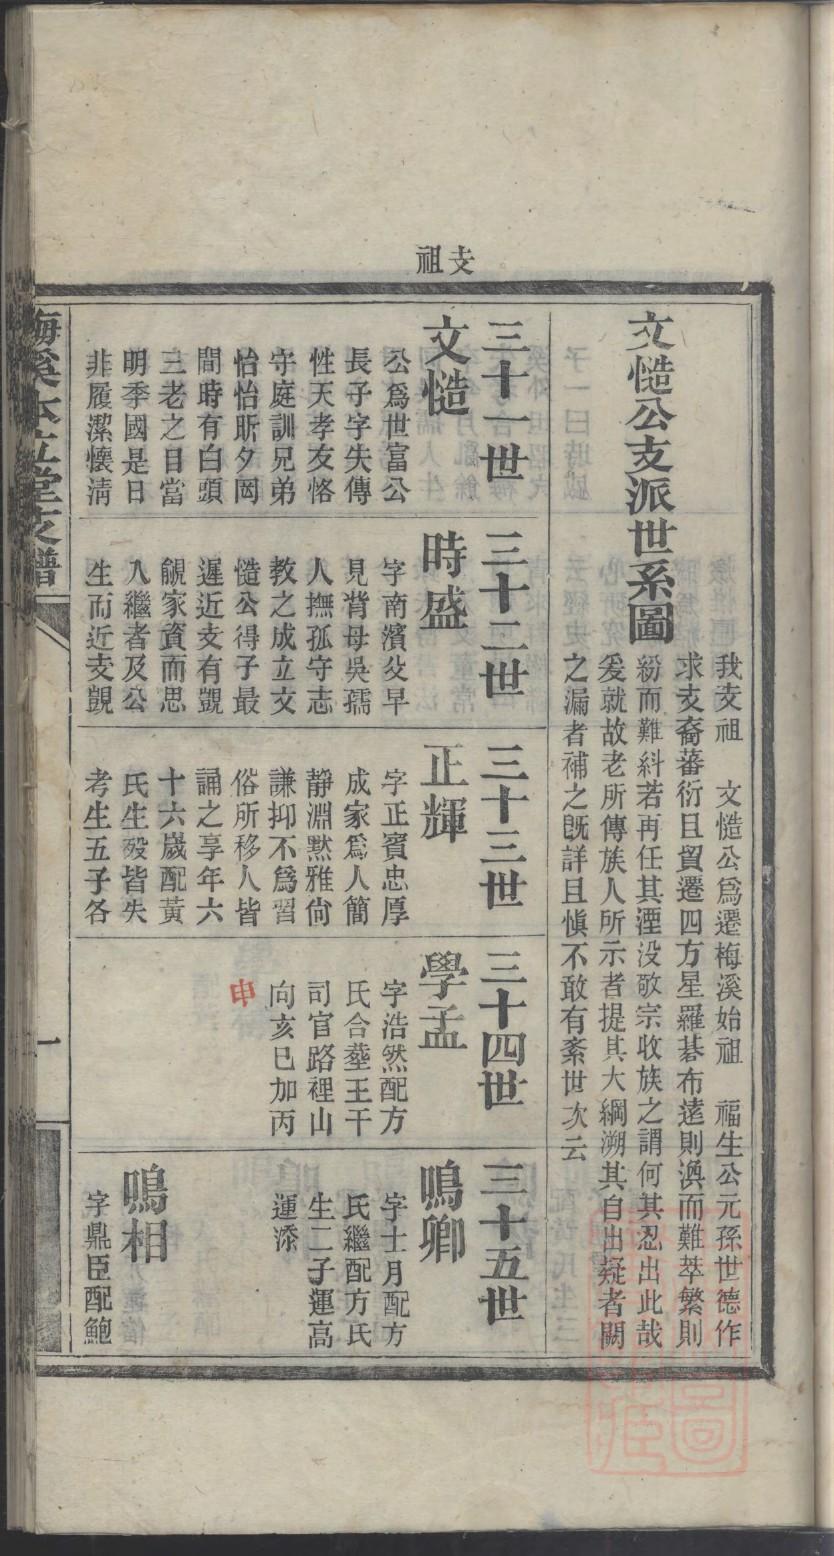 支祖
文慥公支派世系圖
我支祖　文慥公爲遷梅溪始祖　福生公元孫世德作
求支裔蕃衍且貿遷四方星羅碁布遠則渙而難萃繁則
紛而難糾若再任其湮没敬宗收族之謂何其忍出此哉
爰就故老所傳族人所示者提其大綱溯其自出疑者闕
之漏者補之既詳且愼不敢有紊世次云
三十一世
文慥
公爲世富公
長子字失傳
性天孝友恪
守庭訓兄弟
怡怡昕夕罔
間時有白頭
三老之目當
明季國是日
非履潔懷淸
三十二世
時盛
字南濱父早
見背母吳孺
人撫孤守志
教之成立文
慥公得子最
遲近支有覬
覦家資而思
入繼者及公
生而近支覬
三十三世
正輝
字正賓忠厚
成家爲人簡
靜淵默雅尙
謙抑不爲習
俗所移人皆
誦之享年六
十六歲配黃
氏生殁皆失
考生五子各
三十四世
學孟
字浩然配方
氏合塟王干
司官路裡山
向亥巳加丙
申
三十五世
鳴卿
字士月配方
氏繼配方氏
生二子運高
運添
鳴相
字鼎臣配鮑
梅溪本立堂支譜
一